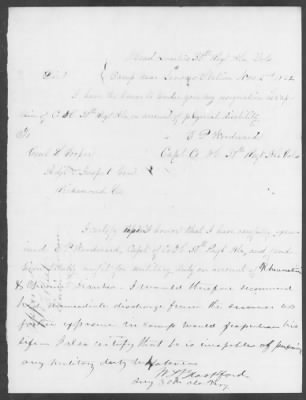 Head Quarters 30th Regt Ala Vols
Camp near Station Nov 2nd 1862
I have the honor to tender you my resignation as cap-
tain of Co H 30th Regt Ala on account of physical disability
To S P Woodward
Genl S Cooper Capt Co H 30th Regt Ala Vols
Adjt & Inspt Genl
Richmond Va
I certify upon honor that I have carefully exam-
ined S P Woodward, Capt of Co H 30th Regt Ala, and
him unfit for military duty on account of Rheumatism
& Chronic Diarrhea. I would therefore recommend
his immediate discharge from the service as
further exposure in camp would jeopardise his
life. I also certify that he is incapable of
any military duty whatever
30th Ala